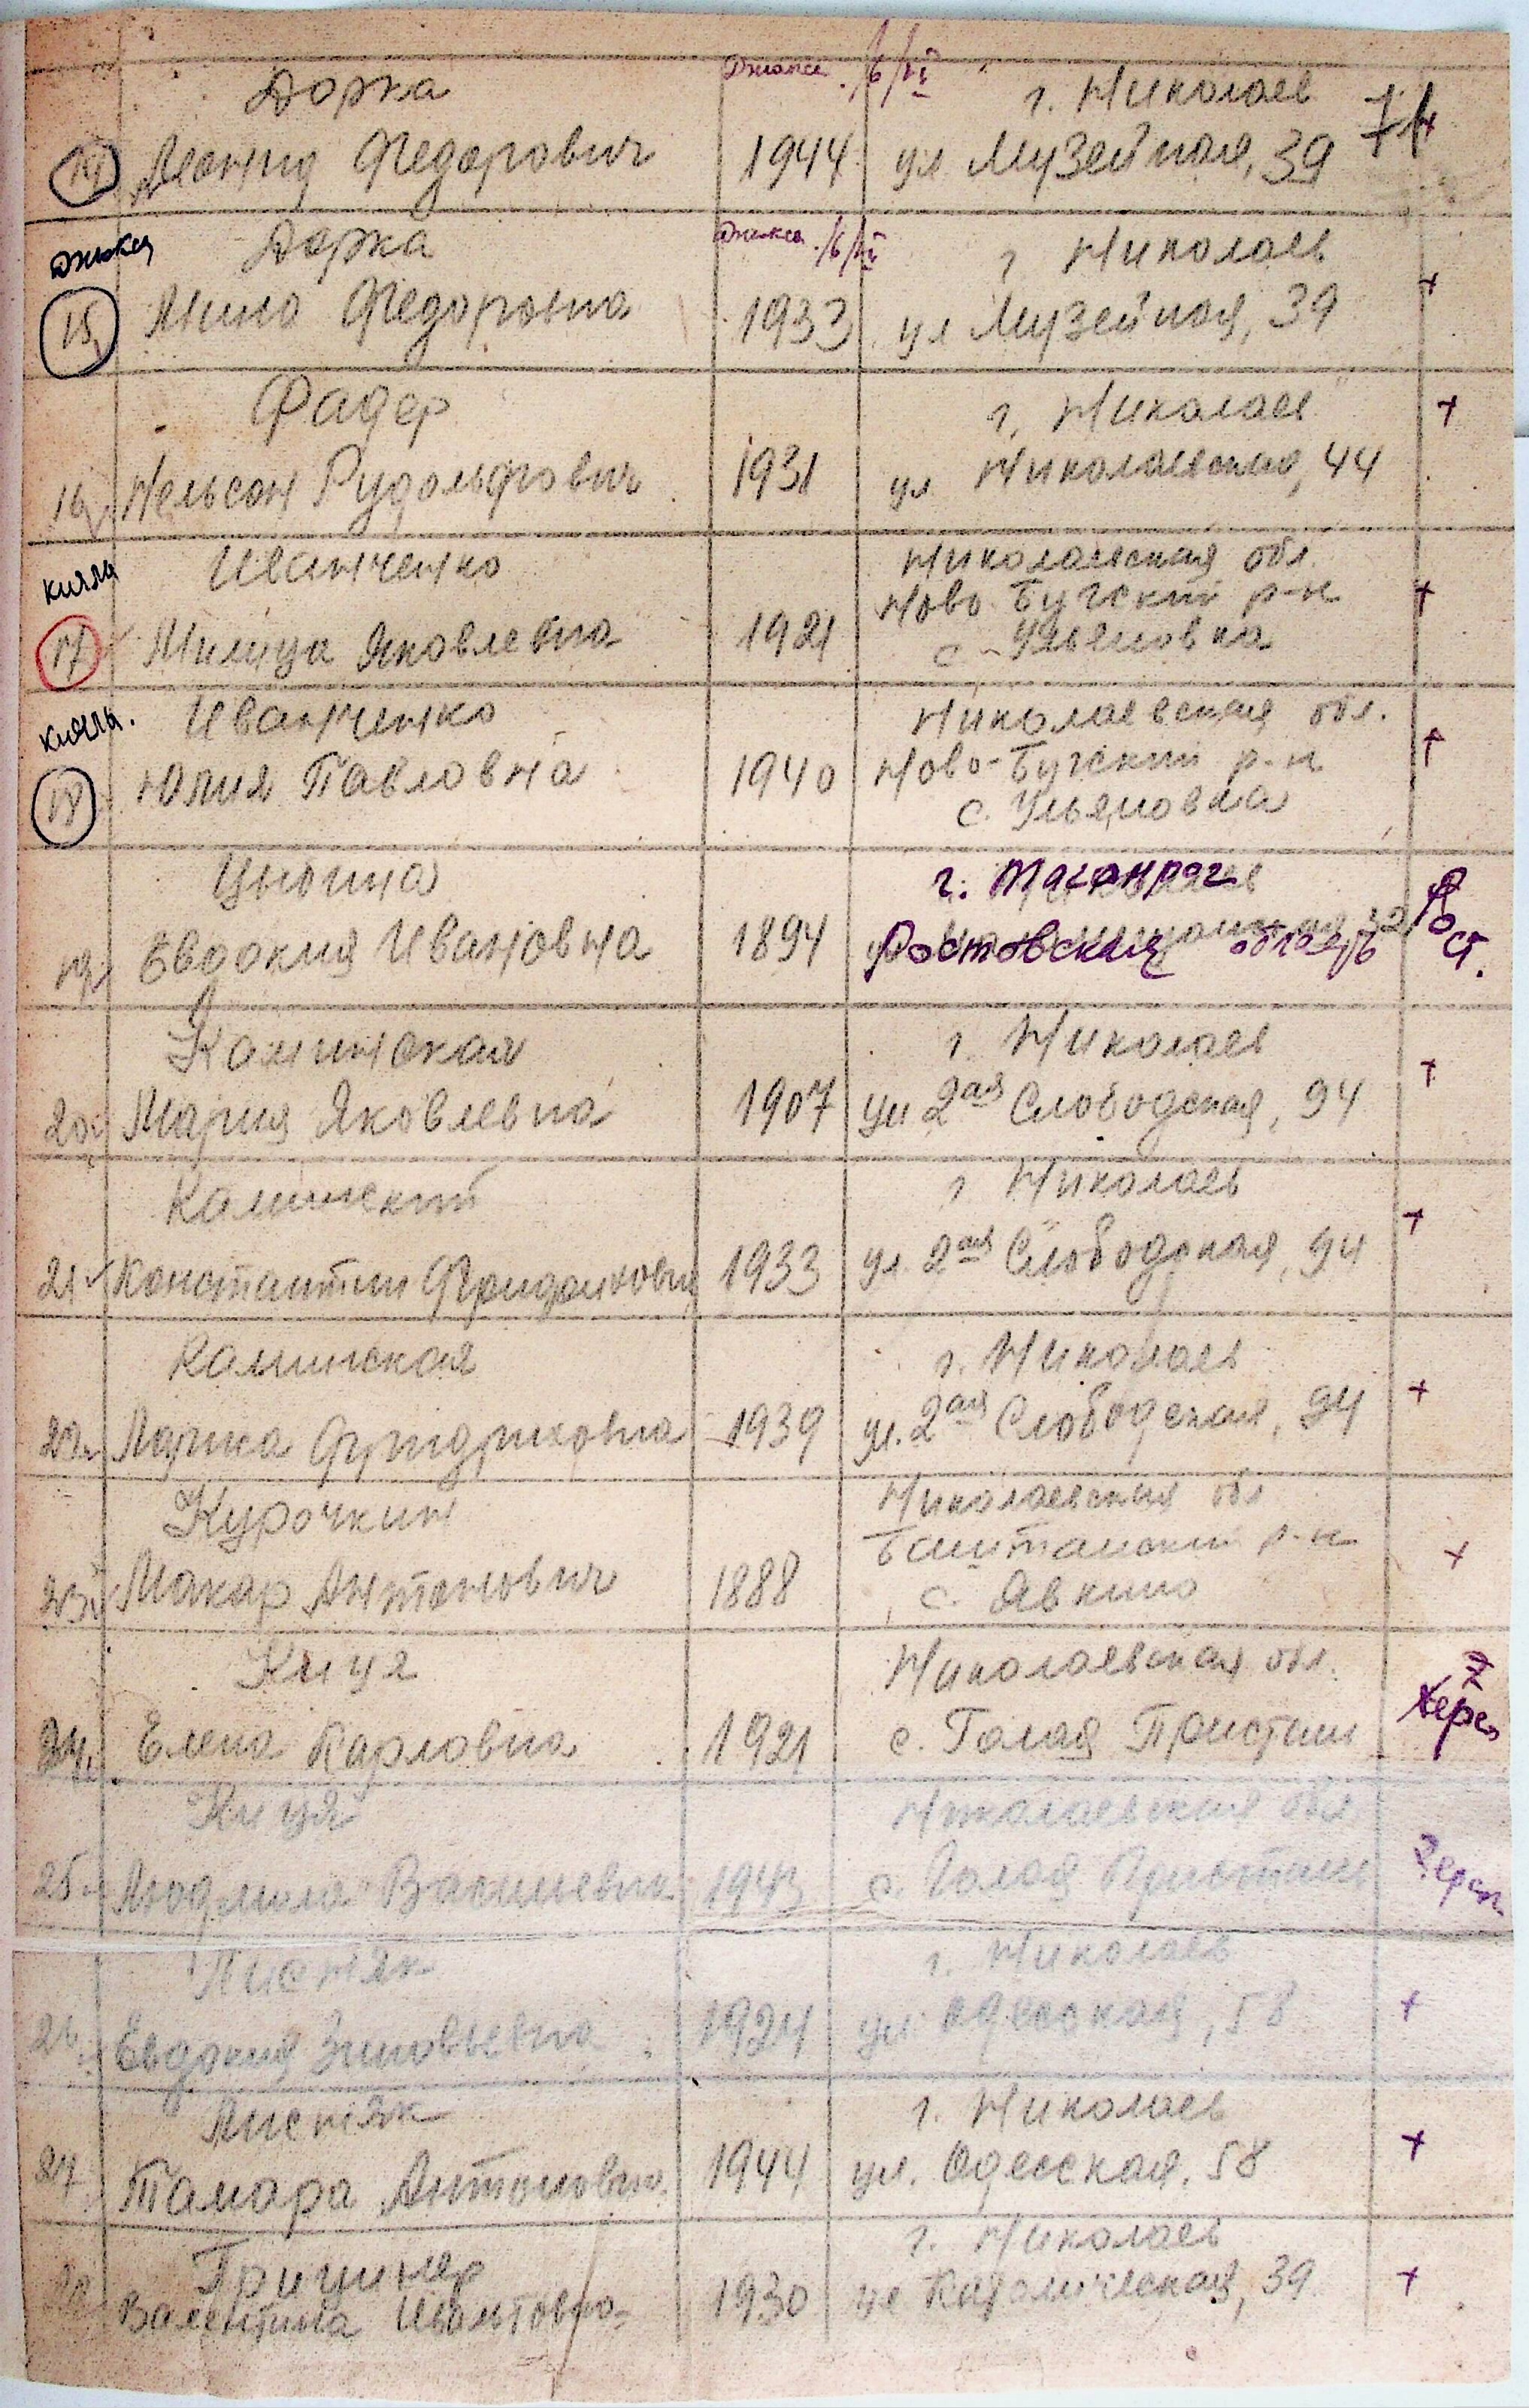 Доржа г. Николаев
14 Леонид Федорович 1944 ул Музейная, 39
Доржа г Николаев
15 Нина Федоровна 1933 ул Музейная, 39 +
Фадер г. Николаев +
16 Нельсон Рудольфович 1931 ул Николаевская, 44
Иванченко Николаевская обл.
Ново-Бугский р-н +
17 Милица Яковлевна 1921 с. Ульяновка
Иванченко Николаевская обл.
18 Юлия Павловна 1940 Ново-Бугский р-н +
с. Ульяновка
г. Таганрог
19 Евдокия Ивановна 1894 Ростовская область Рост.
Каминская г. Николаев
20 Мария Яковлевна 1907 ул 2ая Слободская, 94 +
Каминский г Николаев
21 Константин Фридрихович 1933 ул. 2ая Слободская, 94 +
Каминская г. Николаев
22 Фридриховна 1939 ул. 2ая Слободская, 94 +
Курочкин Николаевская обл
Баштанский р-н
23 Макар Антонович 1888 с. Явкино +
Куця Николаевская обл.
24. Елена Карловна 1921 с. Голая Пристань Херсон
Куця Николаевская обл
25 Людмила Васильевна 1943 с. Голая Пристань
Лисняк г. Николаев
26 Евдокия Зиновьевна 1924 ул. Одесская, 58 +
Лисняк г. Николаев
27 Тамара Антоновна 1944 ул. Одесская, 58 +
г. Николаев
Валентина 1930 ул Католическая, 39 +